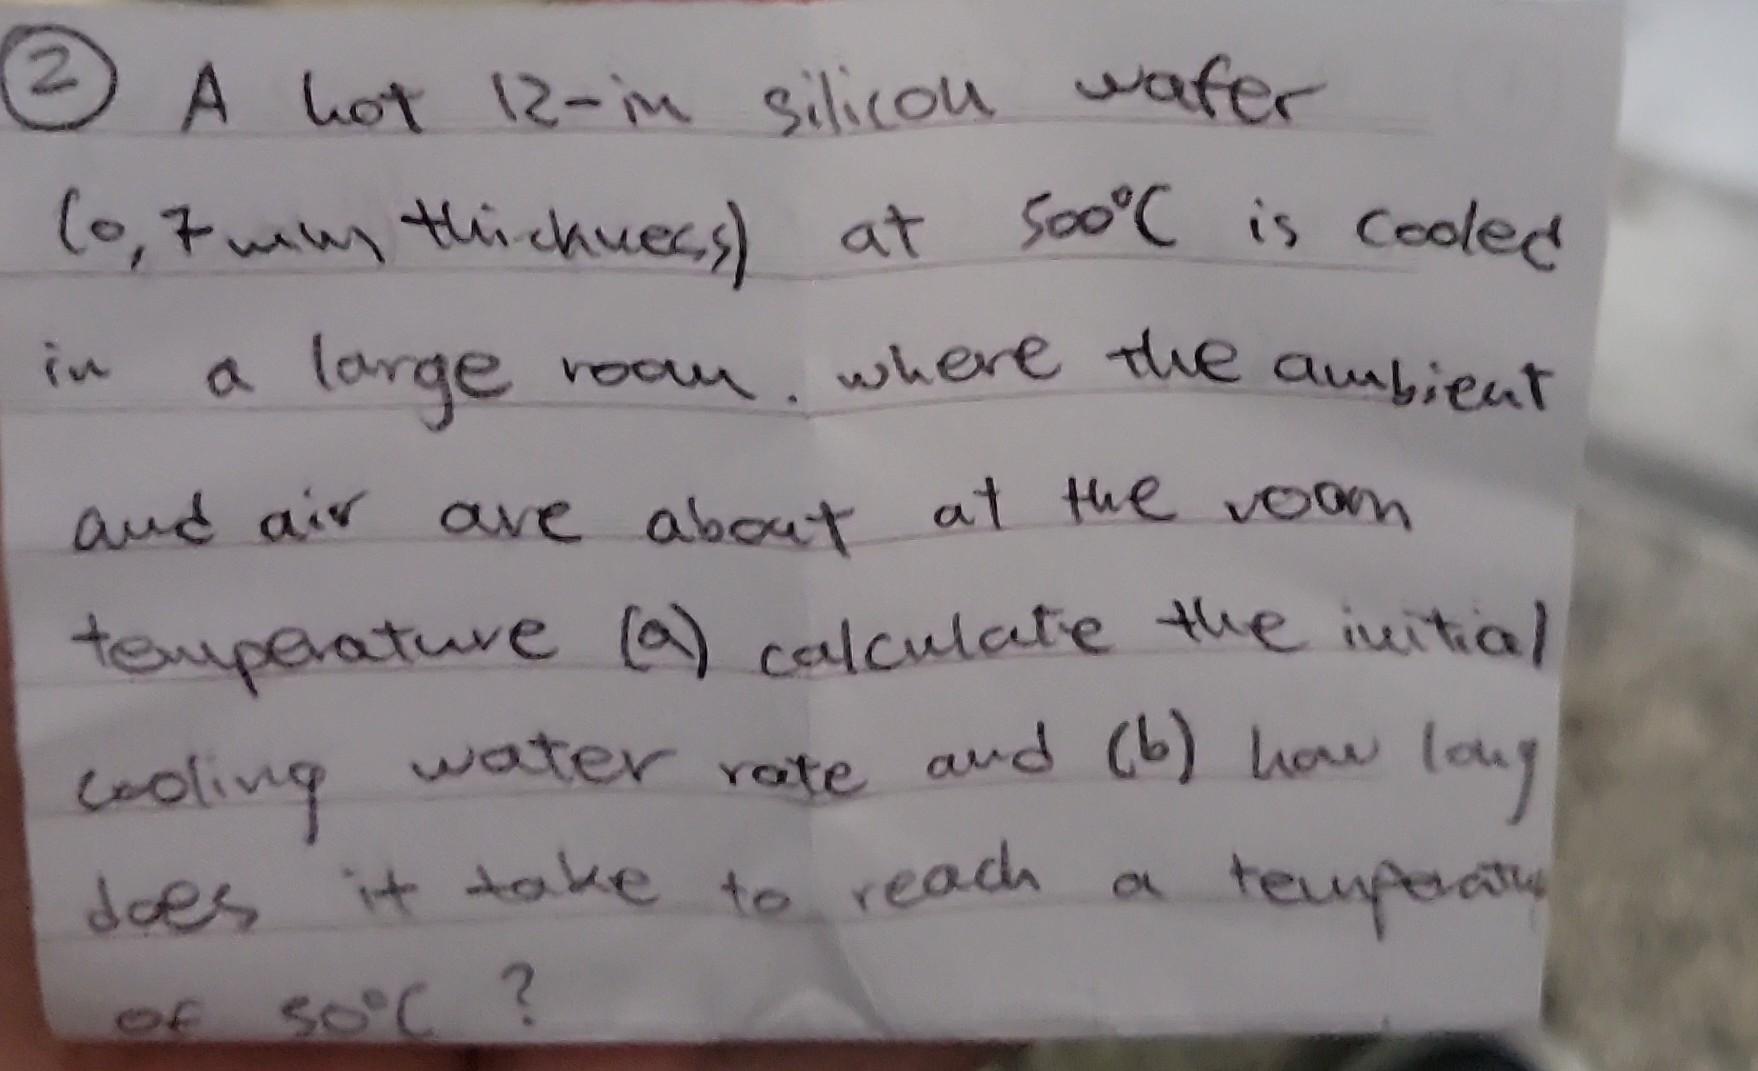 2 A hot 12-in silicon wafer
(0,7mm thickness) at 500°C is cooled
in a large room. where the ambient
and air are about at the room
temperature (a) calculate the initial
cooling water rate and (b) how long
does it take to reach a temperature
of 50°C ?